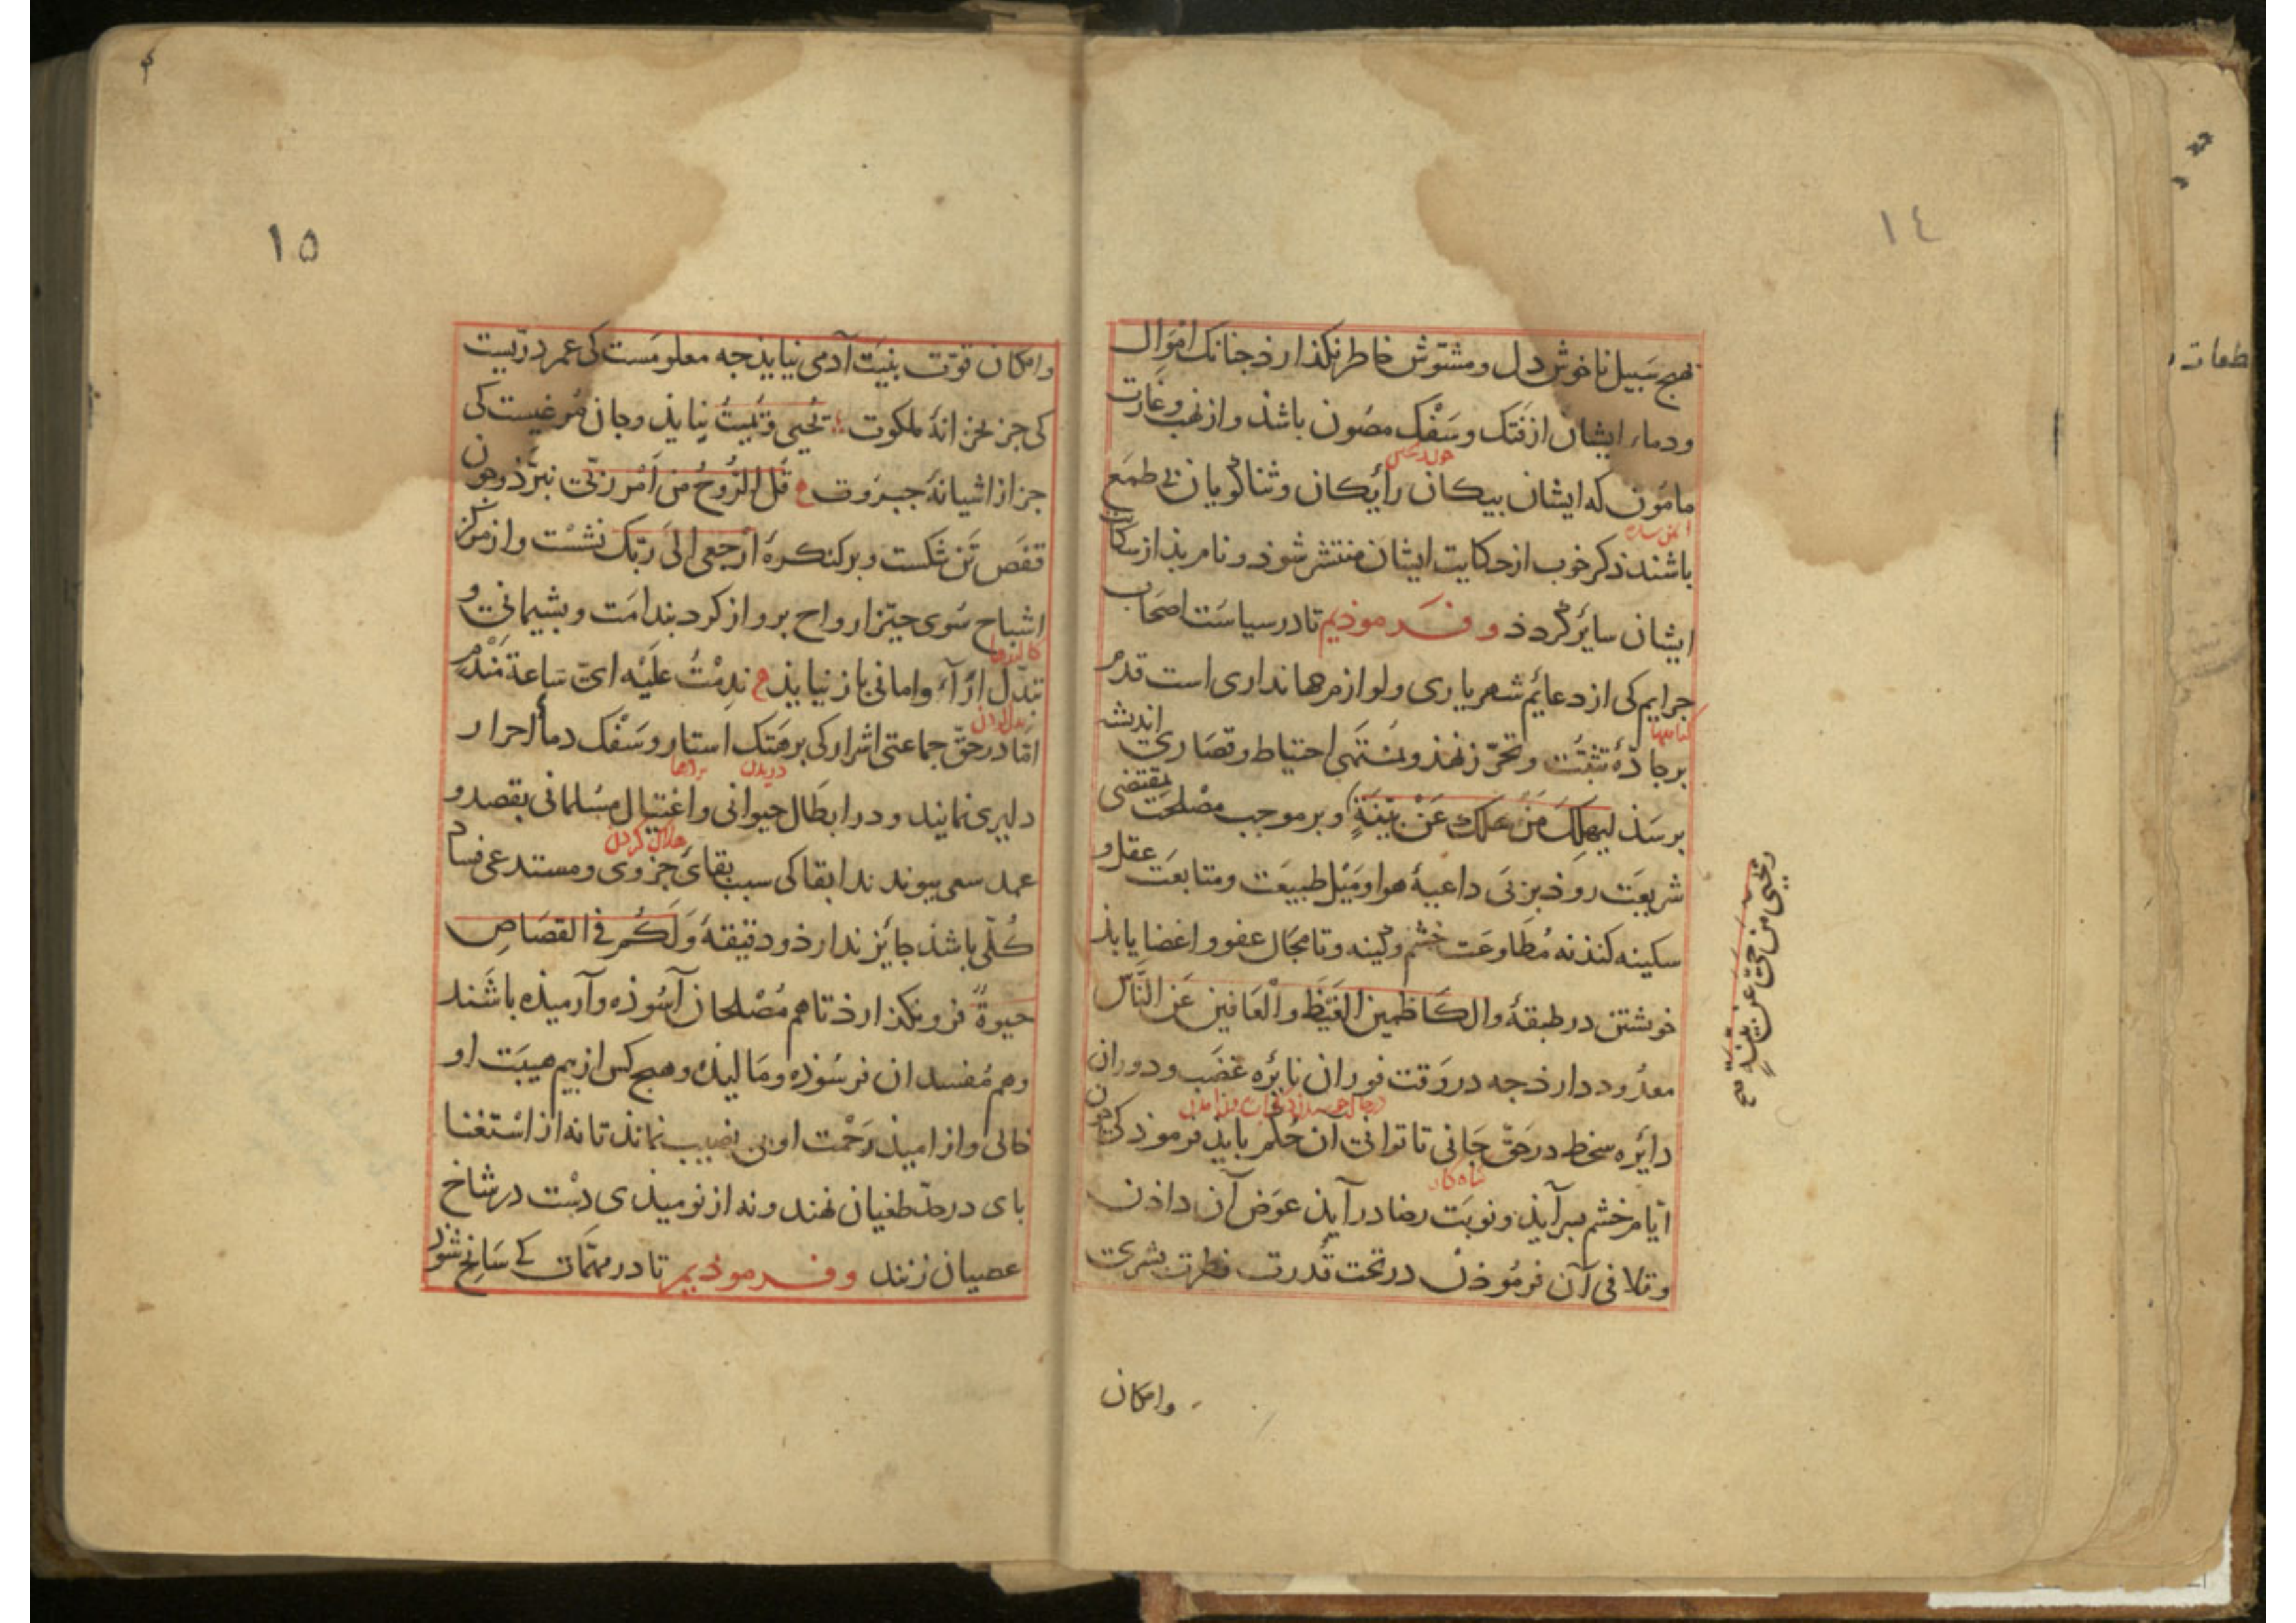 ١٤
بهیج سَبیل ناخوش دل و مشتوّش خاطر نکذارذ جنانک اموَال
ودماء ایشان از فَتک وسَفْک مصُون باشذ و از نهب وغارت
مامَون که ایشان بیکان رأیکان و ثناکویان بی طمَع
باشند ذکر خوب از حکایت ایشان منتشر شوذ و نام بذ از
ایشان سایرْ کردذ وفرموذیم تا در سیاسَت اصحَاب
جرایم کی از دعایم شهریاری و لوازم جهانداری است قدم
کناهها
بر جادّۀ تثبتُ و تحرّز نهذ و بمُنتَهی احتیاط و قصَاری اندیشه
برسَذ لیهلِکَ مَنْ هَلکَ عَنْ بیّنَةٍ و بر موجب مصْلحَت بمقتضی
شریعَت روذ بر پَی داعیۀ هوا و مَیْل طبیعَت و متابعَت عقل و
سکینه کنذ نه مُطاوعَت خشم و کینه و تا مجَال عفو و اغضا یابذ
خویشتن در طبقۀ والکَاظمین الغَیْظَ والْعَافین عَن النَّاسِ
معدُود دارذ جه در وَقت فوران نایره غضَب و دوران
دایَره سخط در حَقّ جَانی تا توانی آن حُکم بایذ فرموذ کی جون
کناه کار
ایّام خشم بسر آیذ و نوبَت رضا در آیذ عوَض آن داذن
و تلافی آن فرمُوذن در تحت قُدرت فطرت بشریت
وامکان
ویحیی من حیّ عن بینةٍ صح
١٥
وامکان قوّت بنیَت آدمی نیایذ جه معلومَست کی عمر درّیست
کی جز بخزانۀ ملکوت یُحیی وَیُمیتُ نیایذ و جان مُرغیست کی
جز از اشیانۀ جبرَوت قُل الرُّوحُ مِنْ اَمْر رَبّی نبرّذ و جون
قفَص تَن شکست و بر کنکرۀ ارْجعی الیَ رَبّک نشسْت و از مرکز
اشباح سُوی حیّز ارواح برواز کرد بندامَت و بشیمانی و
کالبدها
تبدّل ارآء و امانی باز نیایذ ندِمْتُ عَلَیْه ایّ سَاعة مَنْدَم
امّا در حَقّ جماعتی اشرار کی بر هَتک استار و سَفْک دمأ احرار
دریدن بردها
دلیری نمایند و در ابطَال حیوانی و اغتیال مسُلمانی بقصد و
هلاک کردن
عمد سعی بیوندند ابقا کی سبب بقایَ جزوی و مستدعی فساد
کُلّی باشذ جایز ندارذ و دقیقۀ وَلَکُم فی القصَاصِ
حیوةٌ فرو نکذارذ تا هم مُصْلحان آسُوذه و آرمیذه باشَند
و هم مُفسدان فرسُوذه و مَالیذه و هیج کس از بیم هیبَت او
خالی و از امیذ رَحْمت او بی نصیب نماند تا نه از استغنا
بای در حدّ طغیان نهند و نه از نومیذی دسْت در شاخ
عصیان زنند وفرموذیم تا در مهمّات کی سَانح شوذ